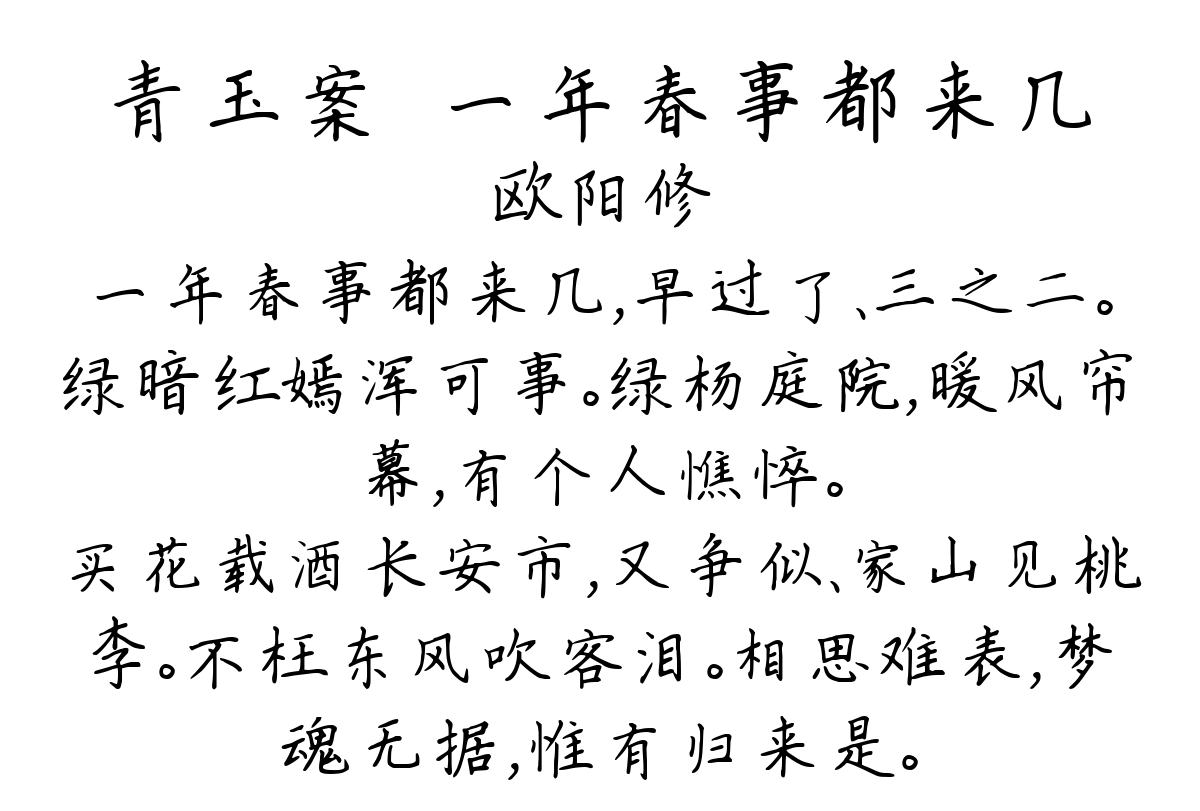 青玉案 一年春事都来几
欧阳修
一年春事都来几,早过了、三之二。
绿暗红嫣浑可事。绿杨庭院,暖风帘
幕,有个人憔悴。
买花载酒长安市,又争似、家山见桃
李。不枉东风吹客泪。相思难表,梦
魂无据,惟有归来是。